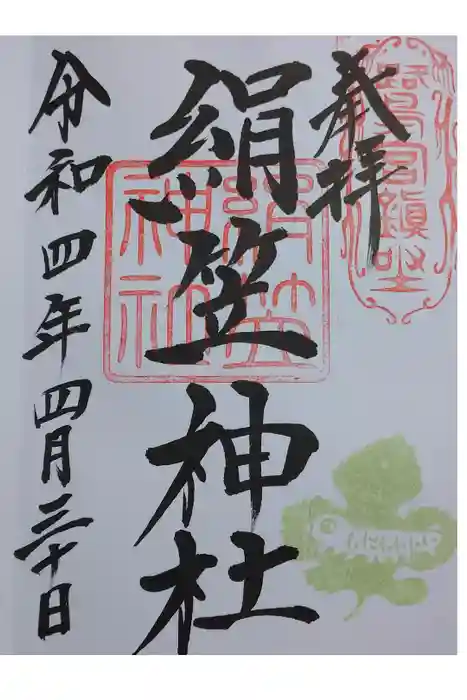 鷲宮鎮坐
奉拝
絹笠神社
絹笠神社
令和四年四月三十日